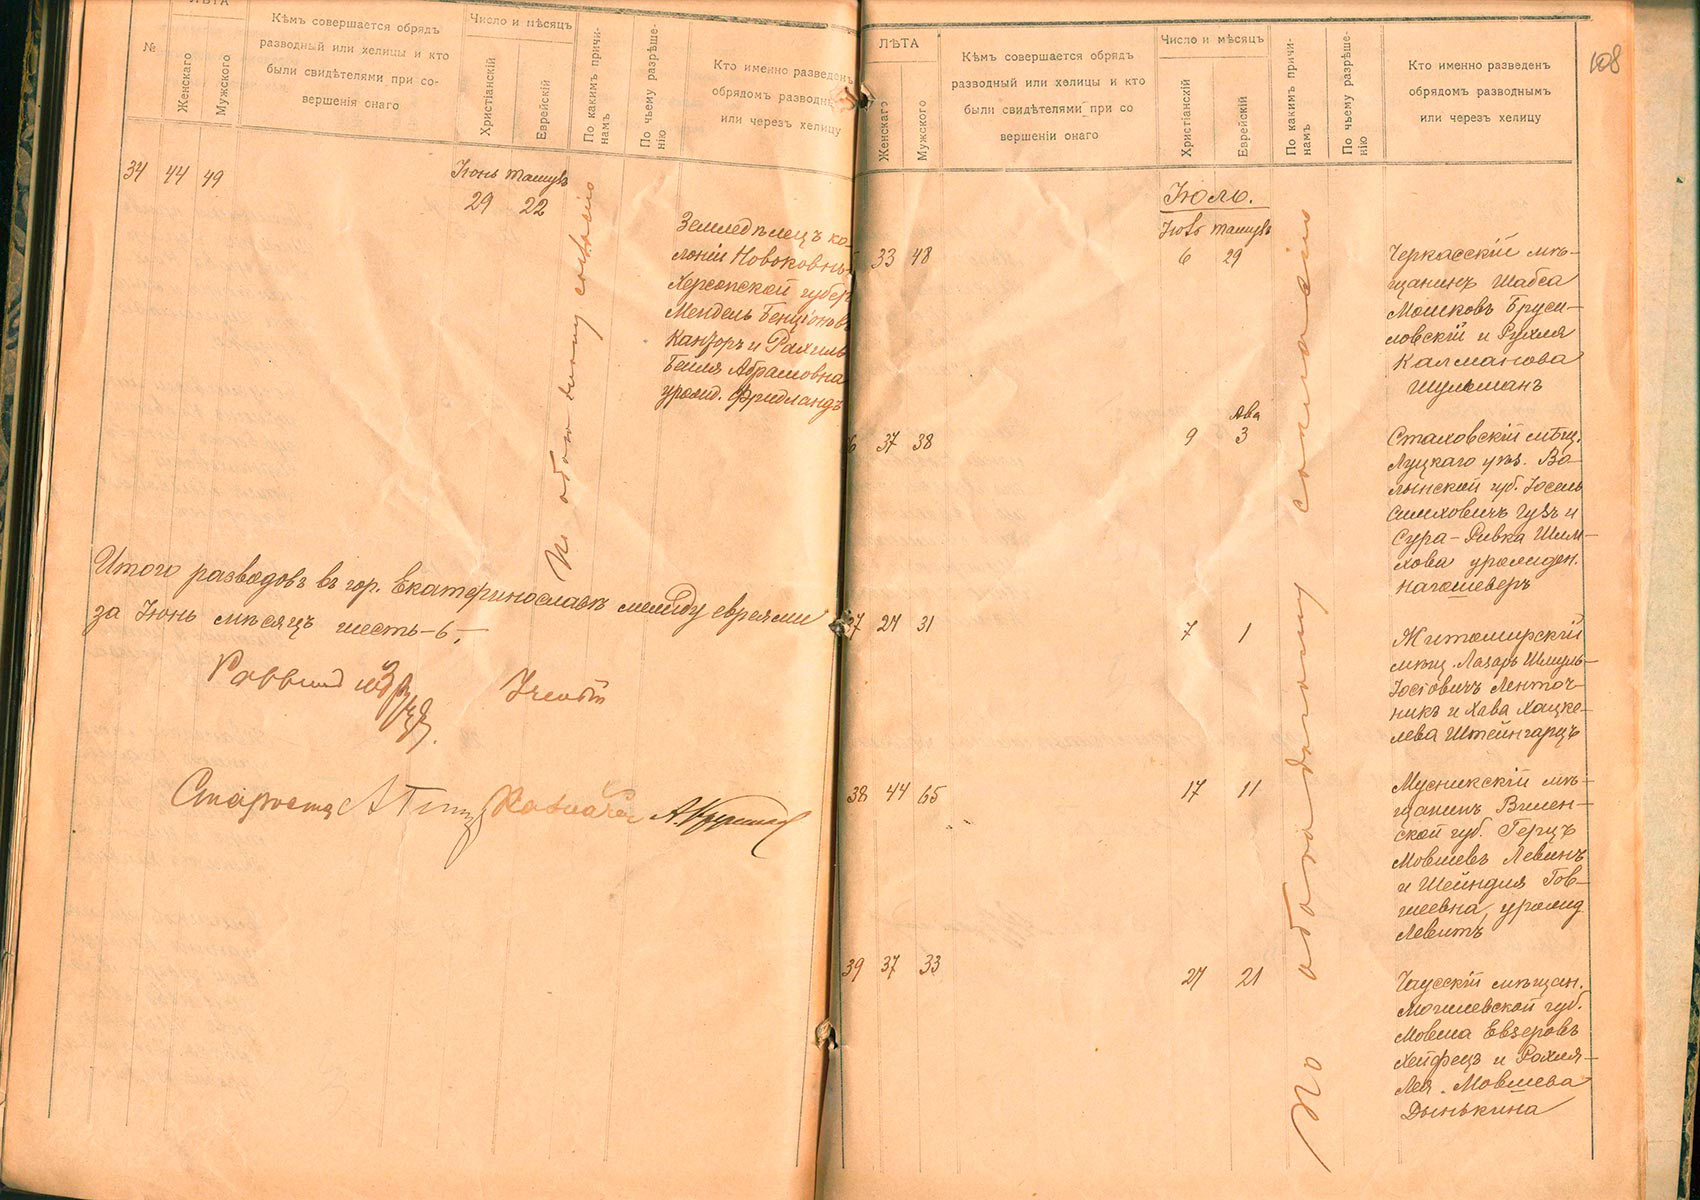 ЛѢТА
№
Женскаго
Мужского
Кѣмъ совершается обрядъ
разводный или хелицы и кто
были свидѣтелями при со-
вершенія онаго
Число и мѣсяцъ
Христіанскій
Еврейскій
По какимъ причи-
намъ
По чьему разрѣше-
нію
Кто именно разведенъ
обрядомъ разводны
или черезъ хелицу
34 44 49
Іюнь тамузъ
29 22
По обоюдному согласію
Земледѣлецъ ко-
лоніи Новоковн
Херсонской губер
Мендель Бенціоновъ
Канторъ и Рахиль
Бейля Абрамовна
урожд. Фридландъ
Итого разводовъ въ гор. Екатеринославѣ между евреями
за Іюнь мѣсяцъ шесть-6.-
Раввинъ
Староста
108
ЛѢТА
Женскаго
Мужского
Кѣмъ совершается обрядъ
разводный или хелицы и кто
были свидѣтелями при со
вершеніи онаго
Число и мѣсяцъ
Христіанскій
Еврейскій
По какимъ причи-
намъ
По чьему разрѣше-
нію
Кто именно разведенъ
обрядомъ разводнымъ
или черезъ хелицу
Іюль.
Іюль тамузъ
33 48 6 29
По обоюдному согласію
Черкасскій мѣ-
щанинъ Шабса
Мошковъ Бруси-
ловскій и Рухля
Калманова
Шульманъ
Ава
6 37 38 9 3
Стаховскій мѣщ.
Луцкаго уѣз. Во-
лынской губ. Іосель
Симховичъ Гузъ и
Сура-Ривка Шим-
хова урожден.
Нагашеверъ
37 27 31 7 1
Житомирскій
мѣщ. Лазарь Шмуль-
Іосіовичъ Ленточ-
никъ и Хава Хацке-
лева Штейнгарцъ
38 44 65 17 11
Мусникскій мѣ-
щанинъ Вилен-
ской губ. Герцъ
Мовшевъ Левинъ
и Шейндля Гов-
шеевна, урожд
Левитъ
39 37 33 27 21
Чаусскій мѣщан.
Могилевской губ.
Мовша Евзеровъ
Хейфецъ и Рохля-
Лея. Мовшева
Дынькина